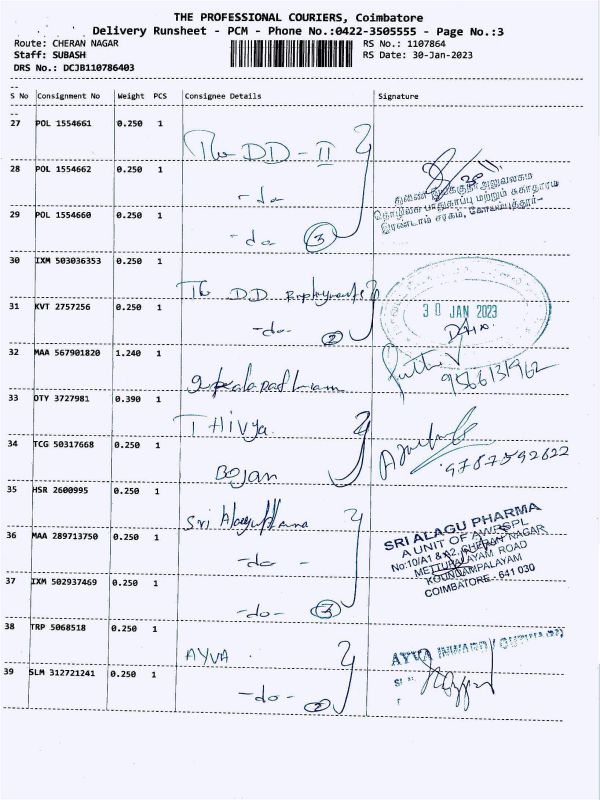 THE PROFESSIONAL COURIERS, Coimbatore
Delivery Runsheet - PCM - Phone No.:0422-3505555 - Page No.:3
Route: CHERAN NAGAR
RS No.: 1107864
Staff: SUBASH
RS Date: 30-Jan-2023
DRS No.: DCJB110786403
S No Consignment No Weight PCS Consignee Details Signature
27 POL 1554661 0.250 1
The DD - II
28 POL 1554662 0.250 1
- do
29 POL 1554660 0.250 1
- do 3
துணை இயக்குநர் அலுவலகம்
தொழிலக பாதுகாப்பு மற்றும் சுகாதாரம்
இரண்டாம் சரகம், கோயம்புத்தூர்-
30 IXM 503036353 0.250 1
The D.D
31 KVT 2757256 0.250 1
- do - 2
30 JAN 2023
32 MAA 567901820 1.240 1
9566131962
33 OTY 3727981 0.390 1
THivya
34 TCG 50317668 0.250 1
Bojan
9787592622
35 HSR 2600995 0.250 1
Sri Alagu Pharma
36 MAA 289713750 0.250 1
- do -
37 IXM 502937469 0.250 1
- do - 3
SRI ALAGU PHARMA
A UNIT OF AWRSPL
No:10/A1 & A2, CHERAN NAGAR
METTUPALAYAM ROAD
KOUNDAMPALAYAM
COIMBATORE - 641 030
38 TRP 5068518 0.250 1
AYVA
39 SLM 312721241 0.250 1
- do - 2
AYVA INWARD / OUTWARD